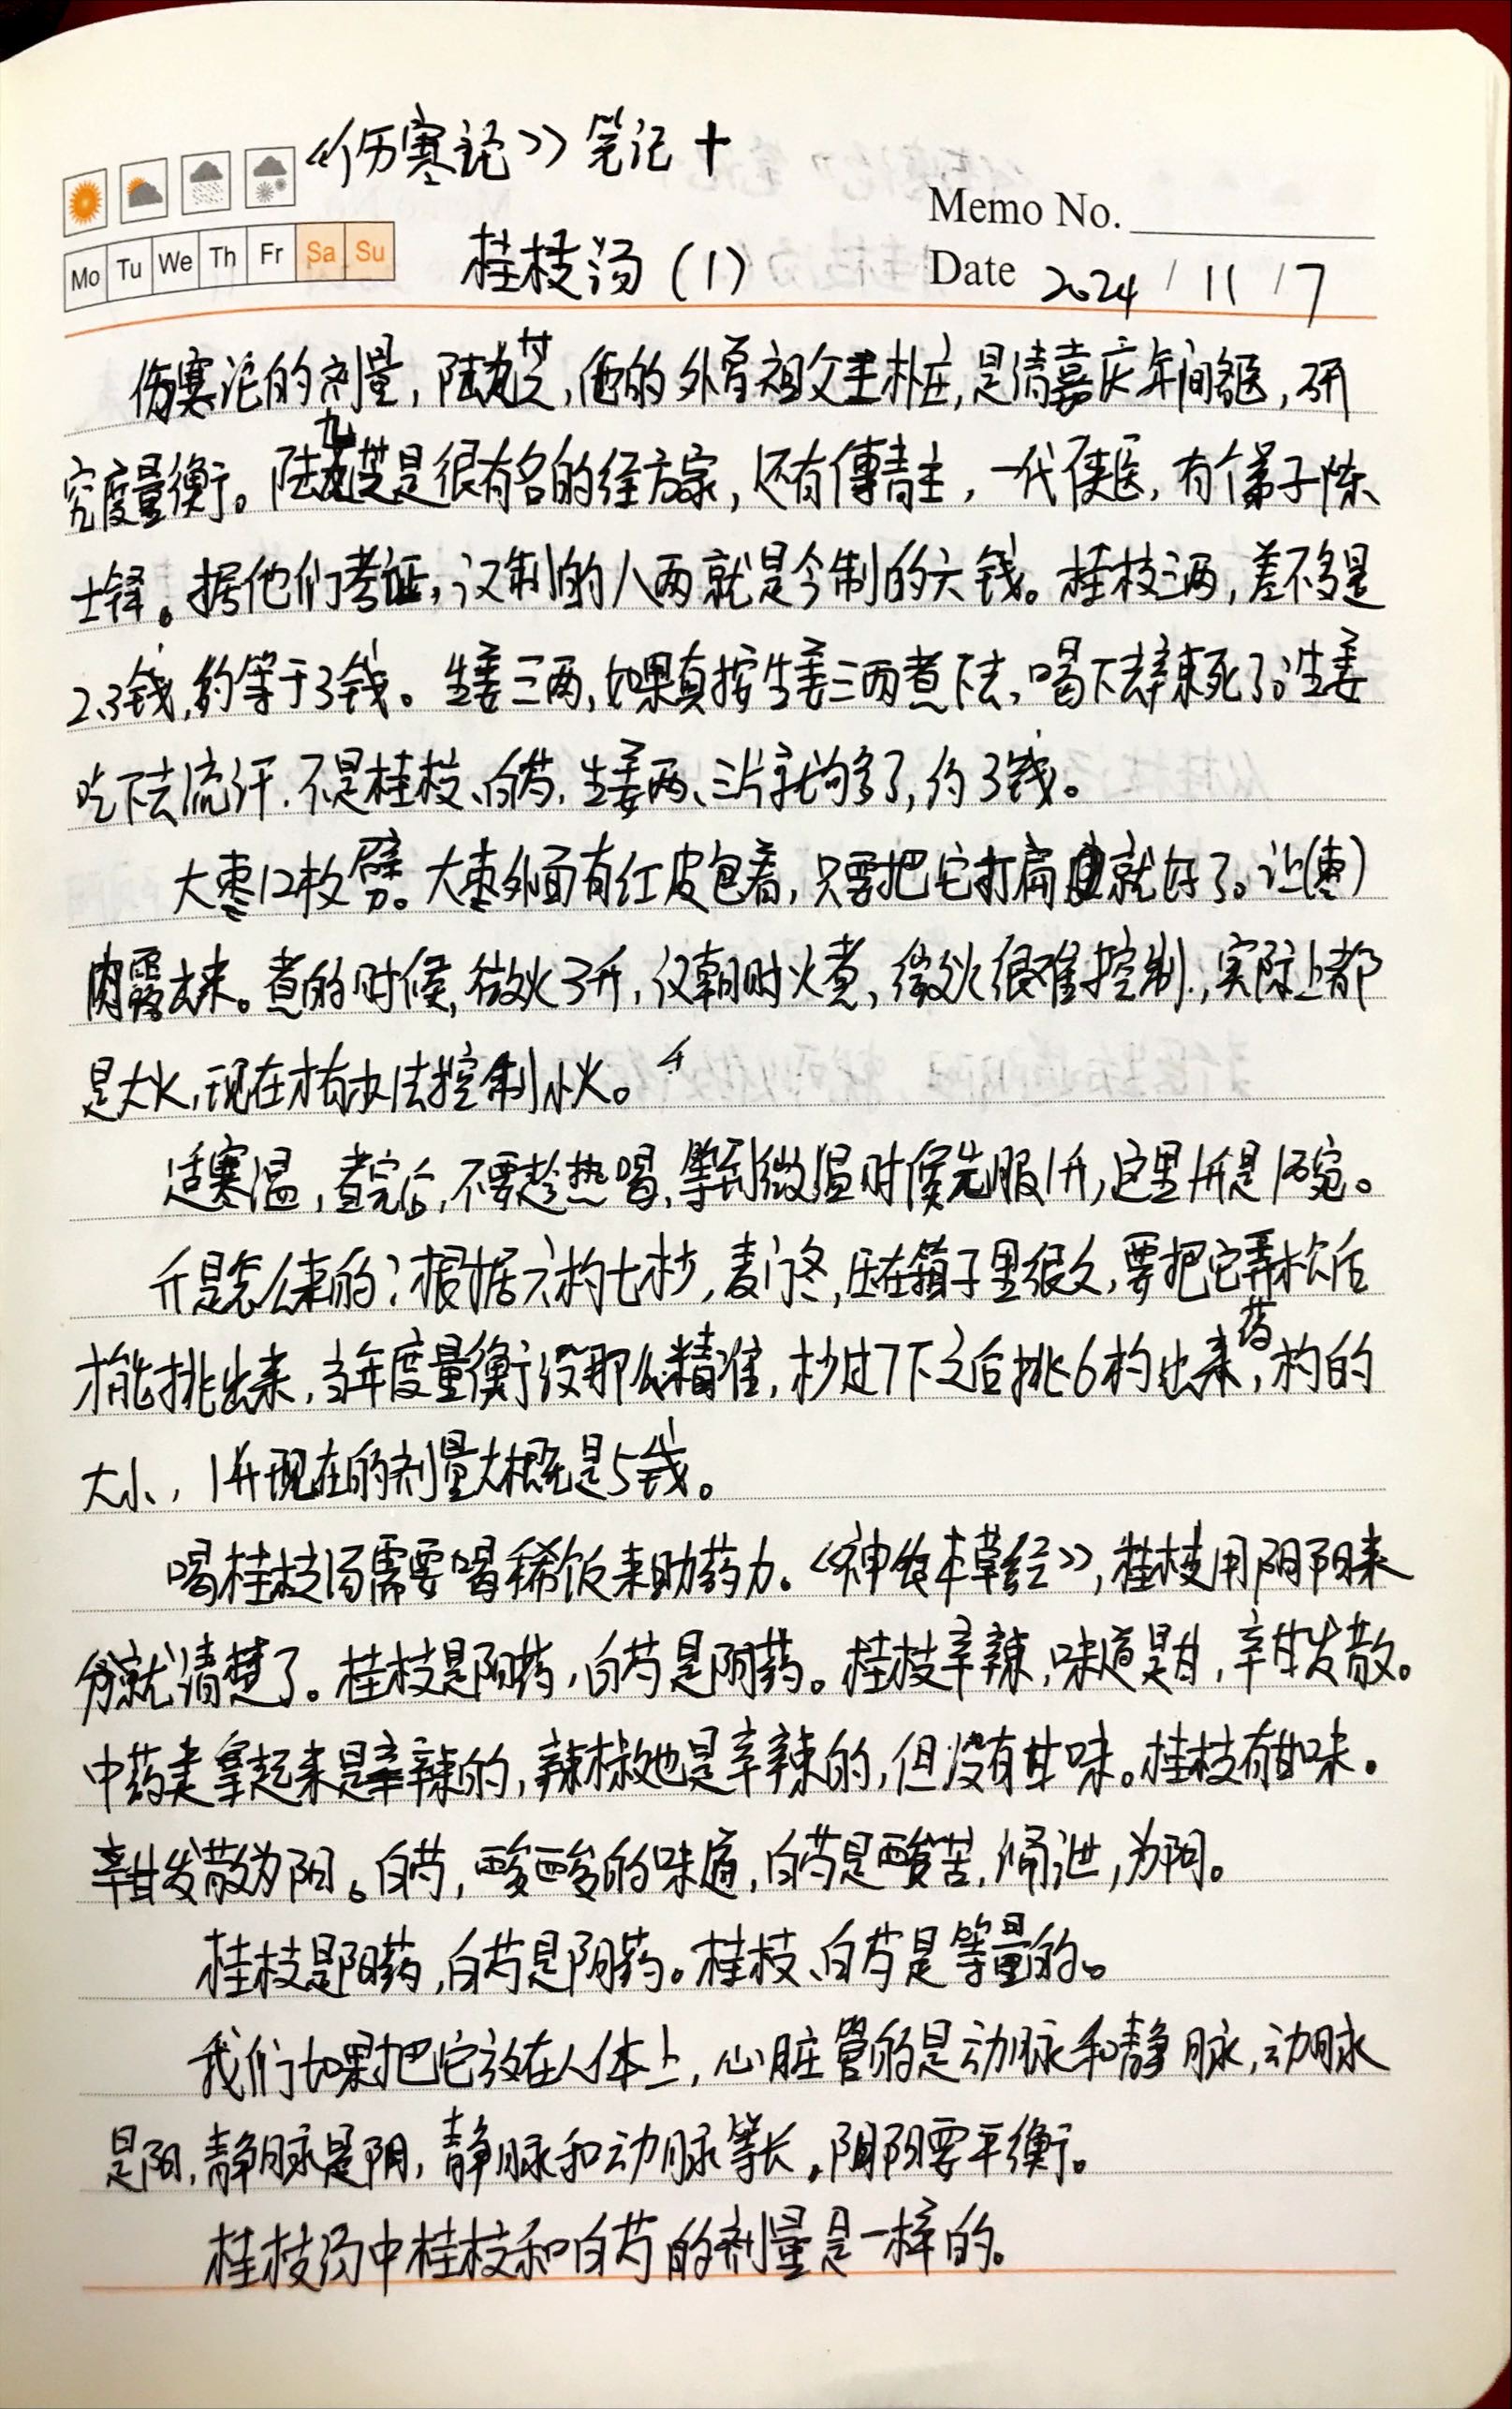 《伤寒论》笔记十
Memo No.
Mo Tu We Th Fr Sa Su
桂枝汤(1)
Date 2024/11/7
伤寒论的剂量,陆九芝,他的外曾祖父王朴庄,是清嘉庆年间御医,研
究度量衡。陆九芝是很有名的经方家,还有傅青主,一代侠医,有个弟子陈
士铎。据他们考证,汉制的八两就是今制的六钱。桂枝三两,差不多是
2.3钱,约等于3钱。生姜三两,如果真按生姜三两煮下去,喝下去辣死了。生姜
吃下去流汗.不是桂枝、白芍.生姜两、三片就够多了,约3钱。
大枣12枚劈。大枣外面有红皮包着,只要把它打扁就好了。让(枣)
肉露出来。煮的时候,微火3升,汉朝时火煮,微火很难控制,实际上都
是大火,现在才有办法控制小火。
适寒温,煮完后,不要趁热喝,等到微温时候先服1升,这里1升是1碗。
升是怎么来的?根据六杓七抄,麦门冬,压在箱子里很久,要把它弄松后
才能挑出来,当年度量衡没那么精准,抄过7下之后挑6杓出来,药杓的
大小,1升现在的剂量大概是5钱。
喝桂枝汤需要喝稀饭来助药力.《神农本草经》,桂枝用阴阳来
分就清楚了。桂枝是阳药,白芍是阴药。桂枝辛辣,味道是甘,辛甘发散。
中药拿起来是辛辣的,辣椒也是辛辣的,但没有甘味。桂枝有甘味.
辛甘发散为阳。白芍,酸酸的味道,白芍是酸苦,涌泄,为阴。
桂枝是阳药,白芍是阴药。桂枝、白芍是等量的。
我们如果把它放在人体上,心脏管的是动脉和静脉,动脉
是阳,静脉是阴,静脉和动脉等长,阴阳要平衡。
桂枝汤中桂枝和白芍的剂量是一样的。